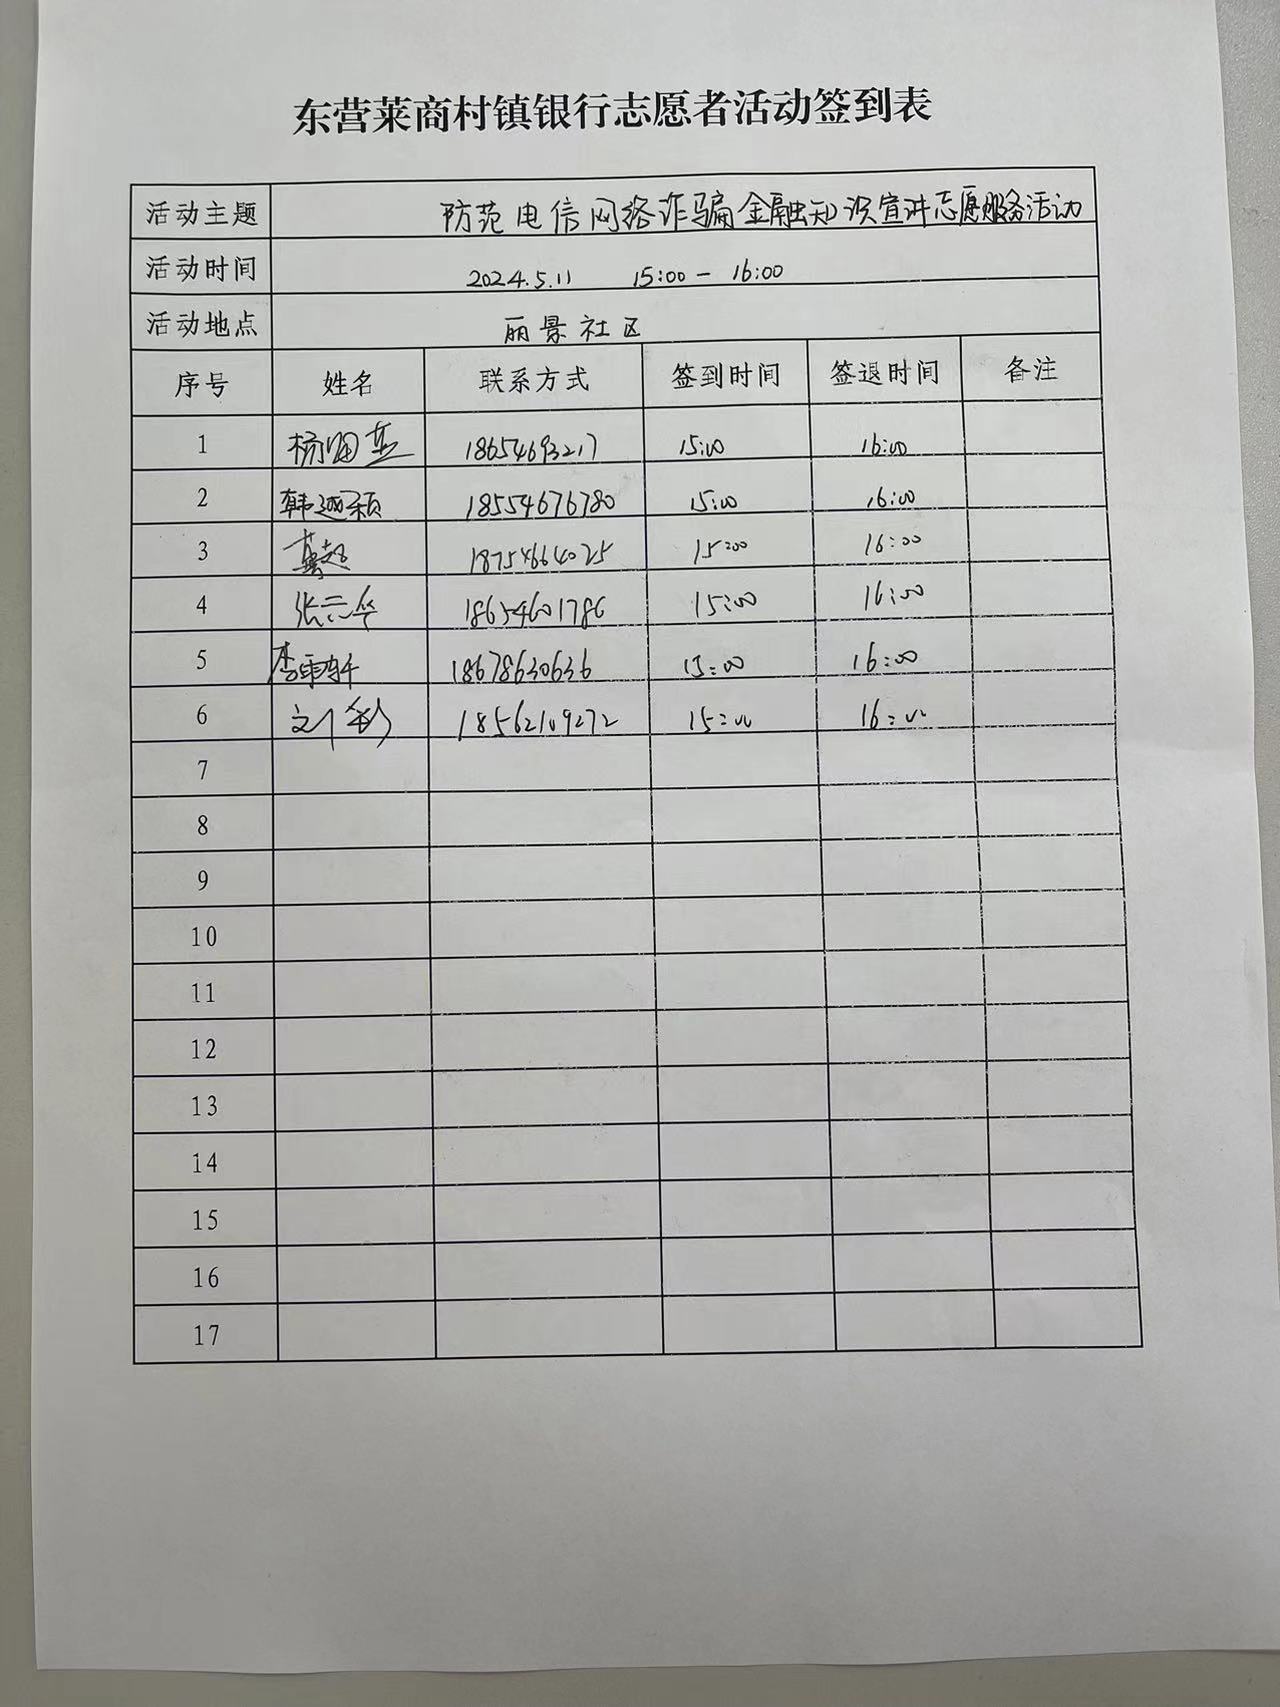 东营莱商村镇银行志愿者活动签到表
活动主题 防范电信网络诈骗金融知识宣讲志愿服务活动
活动时间 2024.5.11 15:00 - 16:00
活动地点 丽景社区
序号 姓名 联系方式 签到时间 签退时间 备注
1 杨 18654693217 15:00 16:00
2 韩越颖 18554676780 15:00 16:00
3 18754664025 15:00 16:00
4 张 18654601786 15:00 16:00
5 李雨轩 18678630636 15:00 16:00
6 刘彩 18562109272 15:00 16:00
7
8
9
10
11
12
13
14
15
16
17